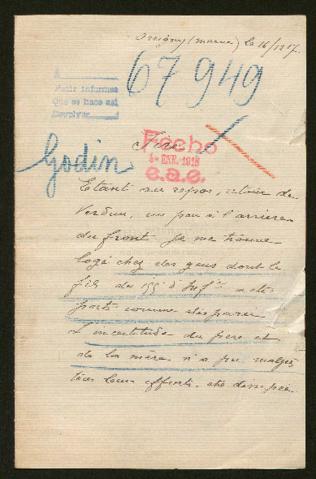 (Marne) le 16/12 17.
67949
A
Pedir informes
Que se hace así
Devolver
Fecho
4- ENE. 1918
e.a.e.
Godin
Etant au repos, retour de
Verdun, un peu à l'arrière
du front je me trouve
logé chez des gens dont le
fils du 155e d'Inf^ie a été
porté comme disparu
L'incertitude du père et
de la mère n'a pu malgré
tous leurs efforts être dissipée